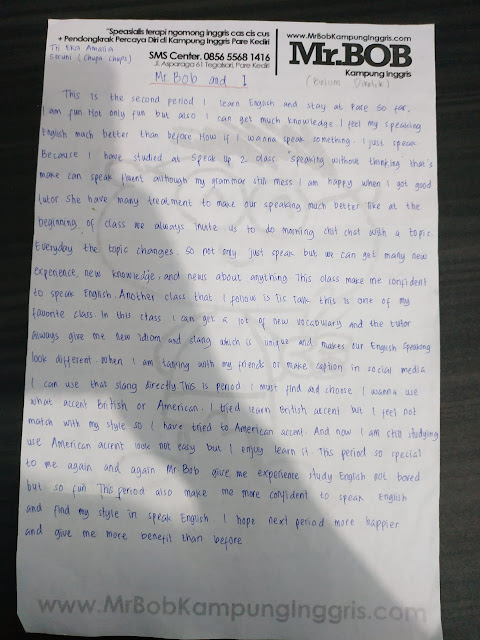 "Speasialis terapi ngomong inggris cas cis cus
+ Pendongkrak Percaya Diri di Kampung Inggris Pare Kediri
SMS Center. 0856 5568 1416
Jl. Asparaga 61 Tegalsari, Pare Kediri
www.MrBobKampungInggris.com
Mr.BOB
Kampung Inggris
Tri Eka Amalia
(Chupa chups)
Mr. Bob and I
(Belum
This is the second period I learn English and stay at Pare So far.
I am fun Not only fun but also I can get much knowledge. I feel my speaking
English much better than before How if I wanna speak something. I just speak
Because I have studied at Speak Up 2 class "speaking without thinking that's
make can speak fluent although my grammar still mess I am happy when I got good
tutor She have many treatment to make our speaking much better like at the
beginning of class we always invite us to do morning chit chat with a topic.
Everyday the topic changes. So not only just speak but we can get many new
experience, new knowledge, and news about anything This class make me confident
to speak English. Another class that I follow is Tic Talk. this is one of my
favorite class. In this class I can get a lot of new vocabulary and the tutor
always give me new idiom and slang which is unique and makes our English speaking
look different. When I am talking with my friends or make caption in social media
I can use that slang directly This is period I must find and choose I wanna use
what accent British or American. I tried learn British accent but I feel not
match with my style so I have tried to American accent. And now I am still studying
use American accent look not easy but I enjoy learn it. This period so special
to me again and again Mr. Bob give me experience study English not bored
but so fun This period also make me more confident to speak English
and find my style in speak English. I hope next period more happier
and give me more benefit than before
www.MrBobKampungInggris.com